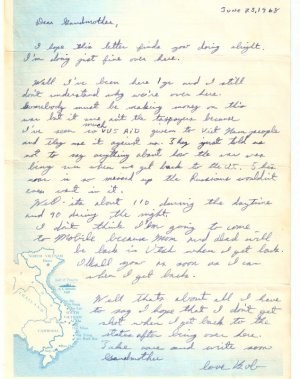 June 23, 1968
Dear Grandmother,
I hope this letter finds you doing alright.
I'm doing just fine over here.
Well I've been here 1 yr and I still
don't understand why we're over here.
Somebody must be making money on this
war but it sure aint the taxpayers because
I've seen so much US AID given to Viet Nam people
and they use it against us. They just told us
not to say anything about how the war was
being run when we get back to the US. This
war is so messed up the Russians wouldn't
even want in it.
Well its about 110 during the daytime
and 90 during the night.
I don't think I'm going to come
to Mobile because Mom and dad will
be back in Utah when I get back.
I'll call you as soon as I can
when I get back.
Well thats about all I have
to say I hope that I don't get
shot when I get back to the
states after being over here.
Take care and write soon
Grandmother
love Bob
NORTH VIETNAM
CAMBODIA